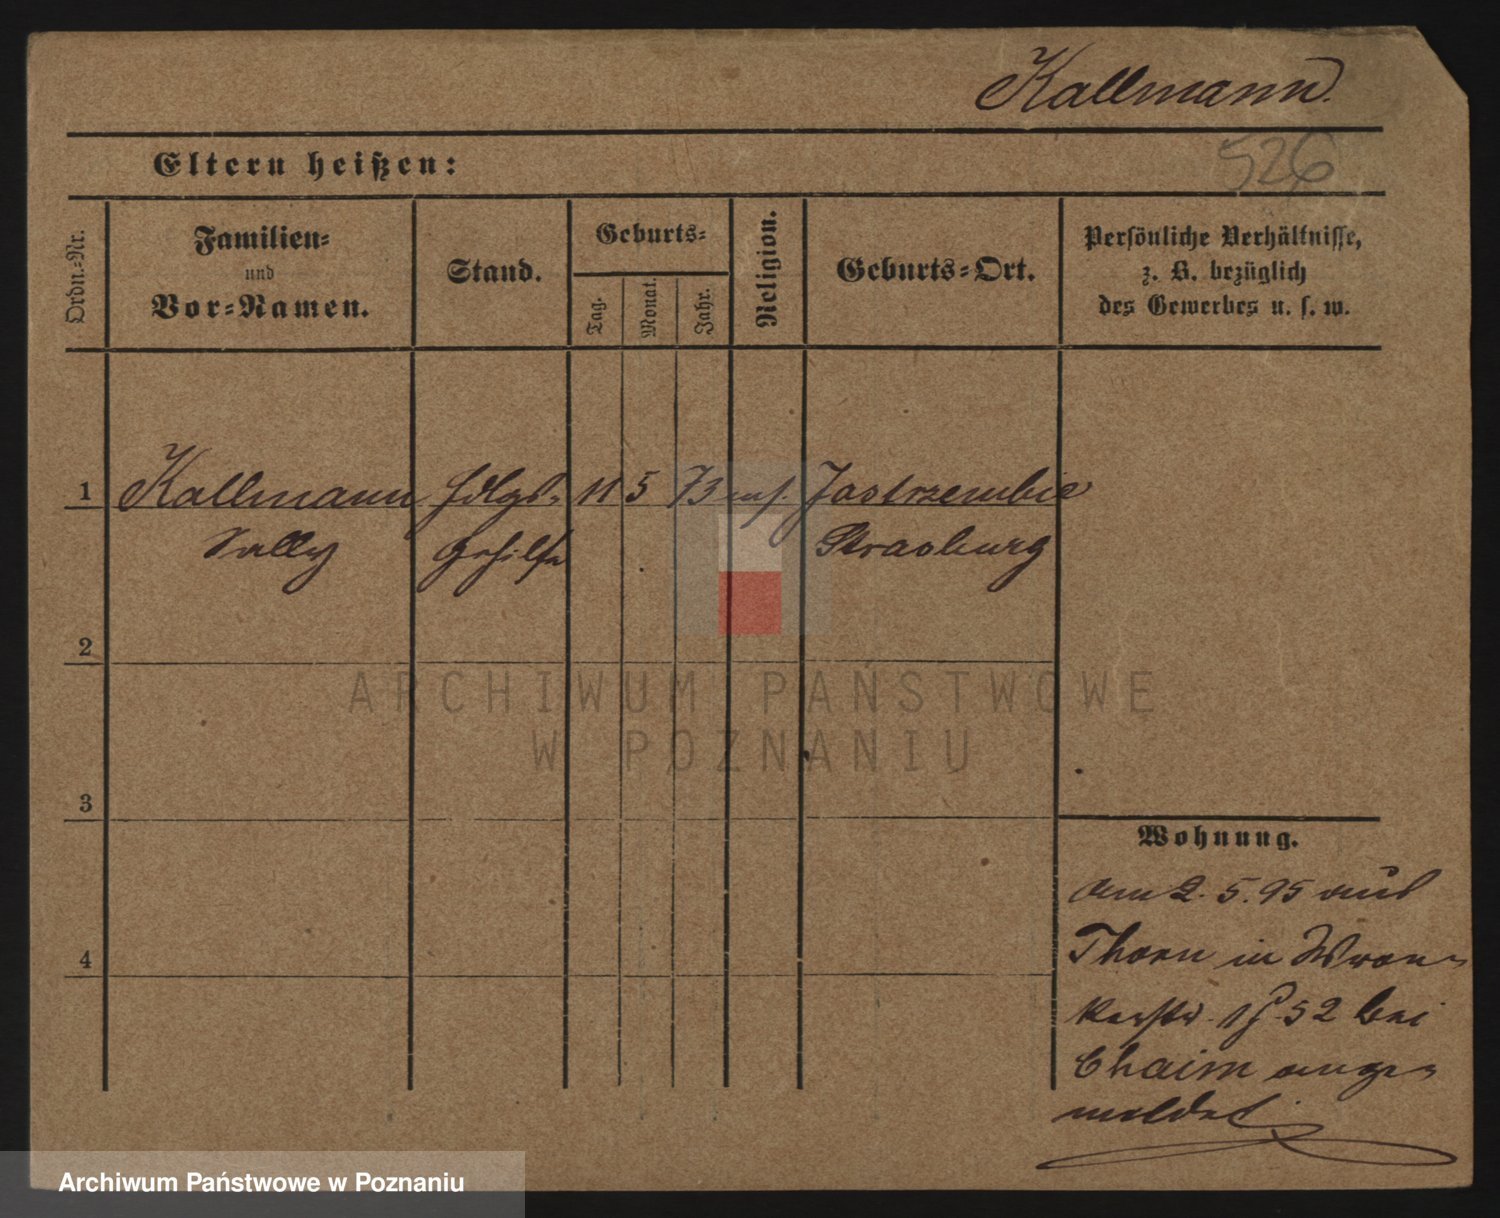 Kallmann.
526
Eltern heißen:
Ordn.-Nr.
Familien-
und
Vor-Namen.
Stand.
Geburts-
Tag.
Monat.
Jahr.
Religion.
Geburts-Ort.
Persönliche Verhältnisse,
z. B. bezüglich
des Gewerbes u. s. w.
1 Kallmann Hdlgs- 11 5 73 mos. Jastrzembie
Sally Gehilfe Strasburg
2
3
4
Wohnung.
Am 2. 5. 95 aus
Thorn in Wron-
kerstr. 52 bei
Chaim ange-
meldet
ARCHIWUM PAŃSTWOWE
W POZNANIU
Archiwum Państwowe w Poznaniu